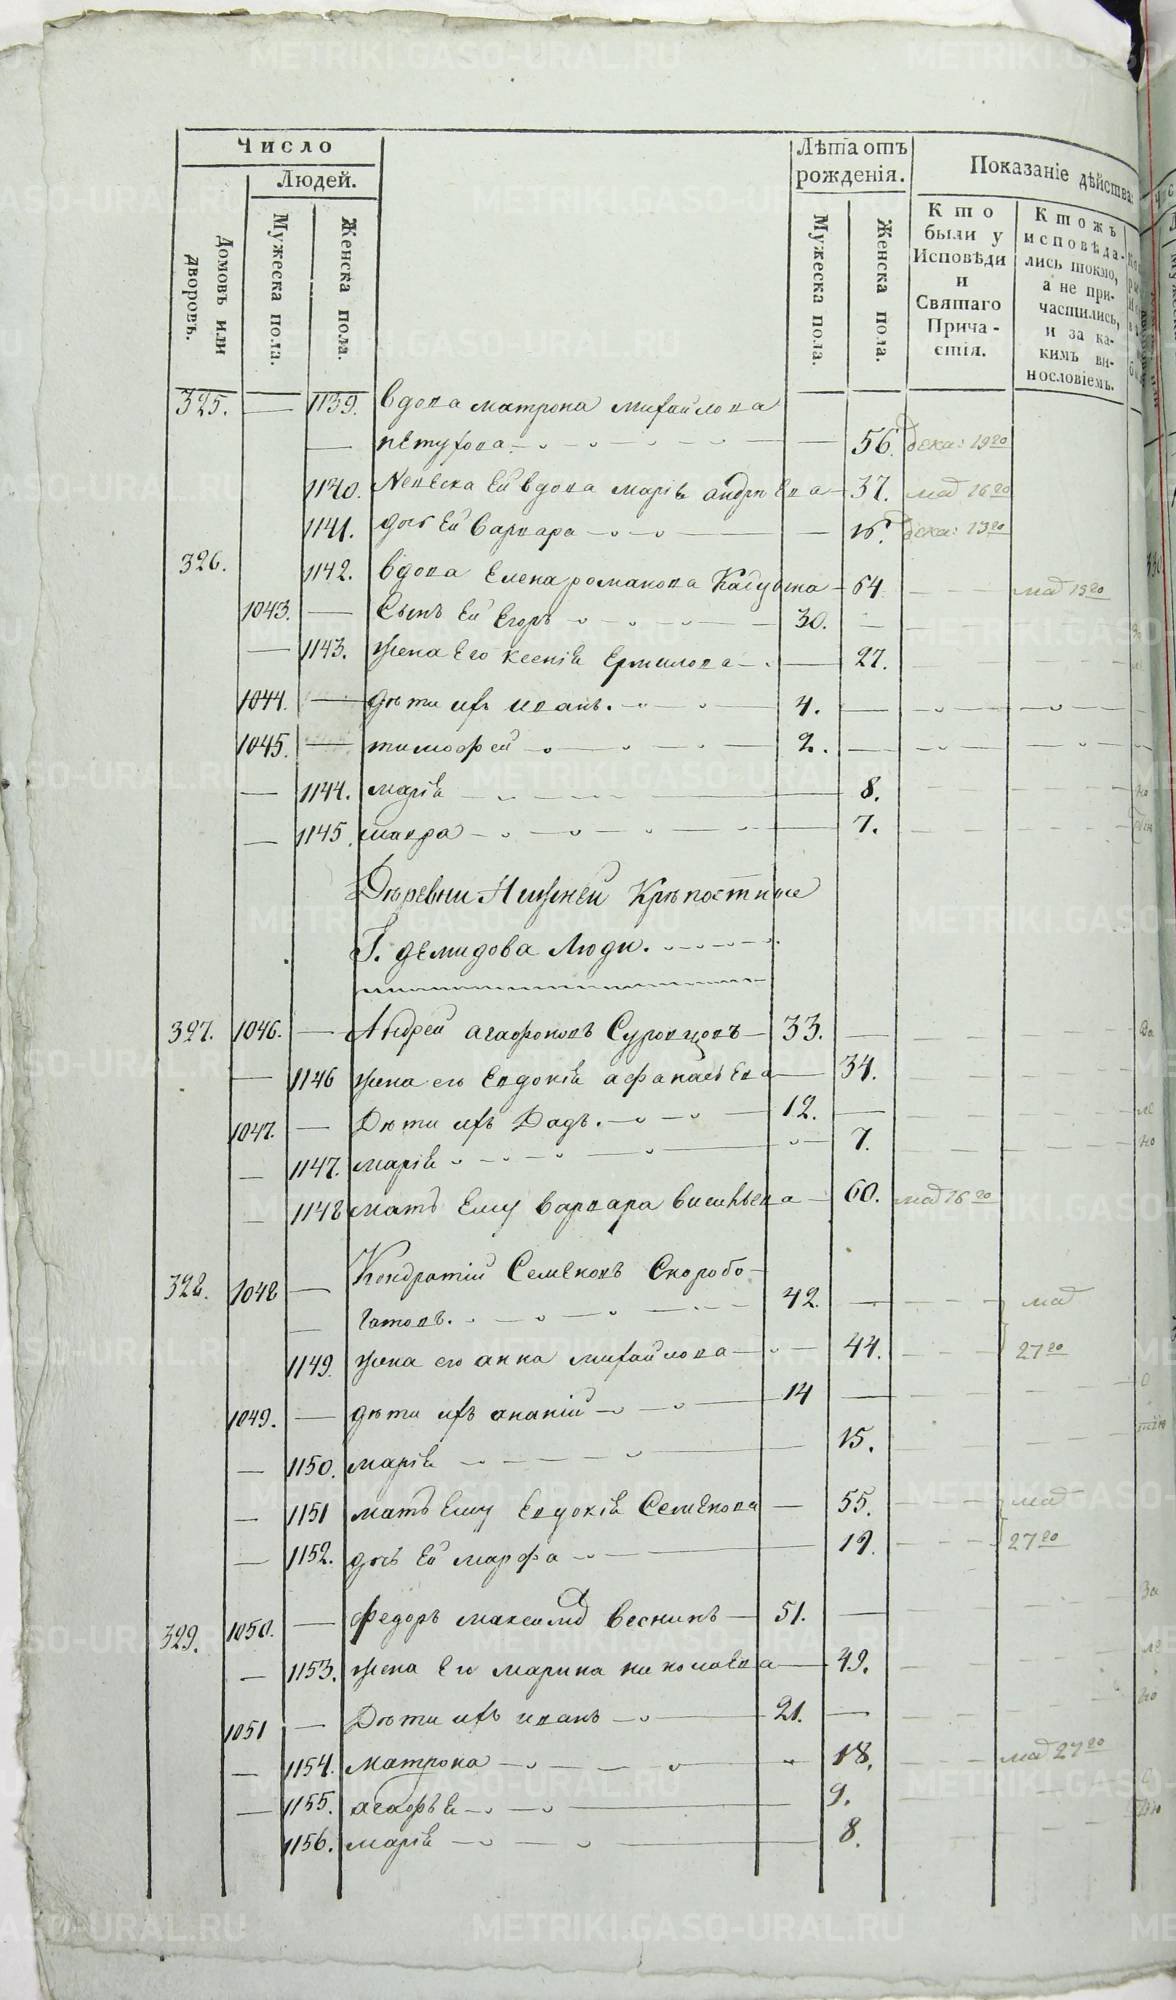 Число
Людей.
Домовъ или дворовъ.
Мужеска пола.
Женска пола.
Лѣта отъ рожденія.
Мужеска пола.
Женска пола.
Показаніе дѣйства
Кто были у Исповѣди и Святаго Причастія.
Кто жъ исповѣдались токмо, а не причастились, и за какимъ винословіемъ.
325. — 1139. вдова матрона михайлова
— петухова — 56. дека: 19го
1140. Невѣска ей вдова марія андрѣева — 37. мая 16го
1141. дочь ей варвара — 15. дека: 13го
326. 1142. вдова Елена романова — 64 мая 15го
1043. — Сынъ ей Егоръ — 30.
— 1143. жена его ксенія ермилова — 27.
1044. — дѣти ихъ иванъ. — 4.
1045. — тимофей — 2.
— 1144. марія — 8.
— 1145. мавра — 7.
Дѣревни Нижней Крѣпостные
Г. демидова Люди.
327. 1046. — Андрей агафоновъ Суровцовъ — 33.
— 1146 жена его Евдокія афанасьева — 34.
1047. — Дѣти ихъ — 12.
— 1147. марія — 7.
— 1148 мать Ему варвара васильева — 60. мая 16го
328. 1048 — Кондратій Семеновъ Скоробо-
— гатовъ. — 42. мая
1149. жена его анна михайлова — 44. 27го
1049. — дѣти ихъ ананій — 14
— 1150. марія — 15.
— 1151 мать Ему Евдокія Семенова — 55. мая
— 1152. дочь Ей марфа — 19. 27го
329. 1050. — федоръ максимовъ — 51.
— 1153. жена Его марина николаева — 49.
1051 — Дѣти ихъ иванъ — 21.
— 1154. матрона — 18. мая 27го
— 1155. агафья — 9.
1156. марія — 8.
METRIKI.GASO-URAL.RU